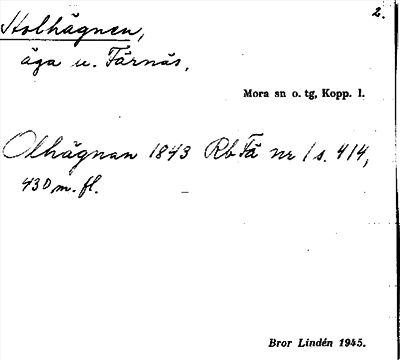 2.
Holhägnen,
äga u. Färnäs.
Mora sn o. tg, Kopp. l.
Olhägnan 1843 Rb Fä nr 1 s. 414,
430 m. fl.
Bror Lindén 1945.